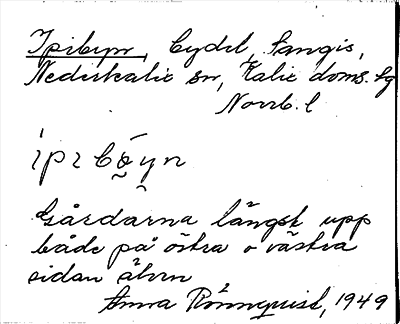 Ipibyn, bydel, Sangis,
Nederkalix sn, Kalix doms. sg
Norrb. l
Gårdarna längst upp
både på östra o västra
sidan älven
Anna Rönnquist, 1949